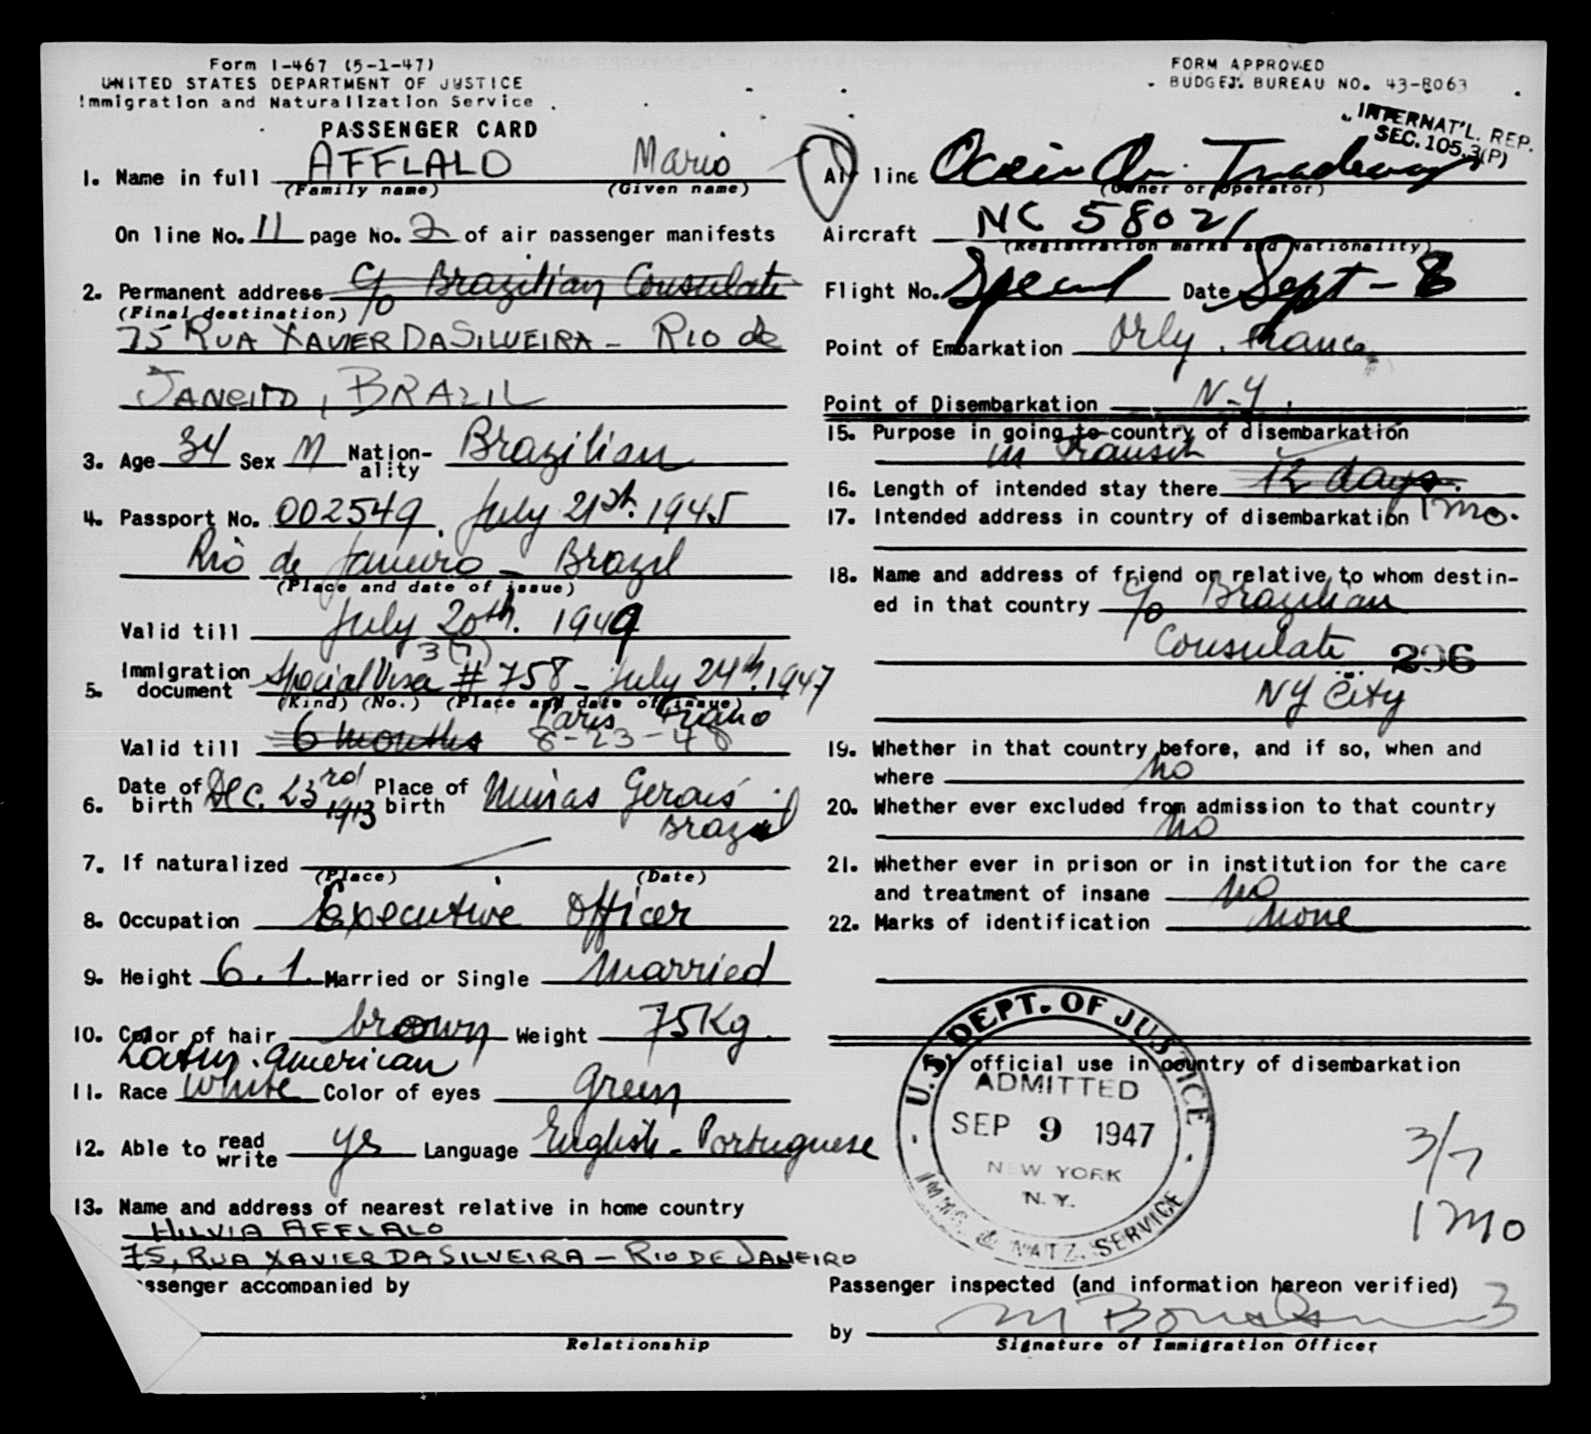 Form I-467 (5-1-47)
UNITED STATES DEPARTMENT OF JUSTICE
Immigration and Naturalization Service
PASSENGER CARD
FORM APPROVED
BUDGET BUREAU NO. 43-R063
INTERNAT'L. REP.
SEC. 105.3(P)
1. Name in full AFFLALO Mario
(Family name) (Given name)
On line No. 11 page No. 2 of air passenger manifests
2. Permanent address c/o Brazilian Consulate
(Final destination)
75 RUA XAVIER DA SILVEIRA - RIO de
JANEIRO, BRAZIL
3. Age 34 Sex M Nation-ality Brazilian
4. Passport No. 002549. July 21st. 1945
Rio de Janeiro - Brazil
(Place and date of issue)
Valid till July 20th. 1949
3(7)
5. Immigration document Special Visa # 758 - July 24th. 1947
(Kind) (No.) (Place and date of issue)
Paris
Valid till 6 months 8-23-48
6. Date of birth Dec. 23rd 1913 Place of birth Minas Gerais
Brazil
7. If naturalized
(Place) (Date)
8. Occupation Executive Officer
9. Height 6.1. Married or Single Married
10. Color of hair brown Weight 75Kg.
Latin. American
11. Race White Color of eyes Green
12. Able to read write yes Language English - Portuguese
13. Name and address of nearest relative in home country
HILVIA AFFLALO
75, RUA XAVIER DA SILVEIRA - RIO DE JANEIRO
ssenger accompanied by
Relationship
Air line Ocean Air Tradeways
(Owner or operator)
Aircraft NC 58021
(Registration marks and nationality)
Flight No. Special Date Sept - 8
Point of Embarkation Orly. France
Point of Disembarkation N-Y.
15. Purpose in going to country of disembarkation
in transit
16. Length of intended stay there 12 days.
17. Intended address in country of disembarkation 1 mo.
18. Name and address of friend or relative to whom destin-
ed in that country c/o Brazilian
Consulate 296
NY City
19. Whether in that country before, and if so, when and
where no
20. Whether ever excluded from admission to that country
no
21. Whether ever in prison or in institution for the care
and treatment of insane no
22. Marks of identification none
official use in country of disembarkation
U.S. DEPT. OF JUSTICE
ADMITTED
SEP 9 1947
NEW YORK
N.Y.
IMMG. & NATZ. SERVICE
3/7
1 mo
Passenger inspected (and information hereon verified)
by
3
Signature of Immigration Officer